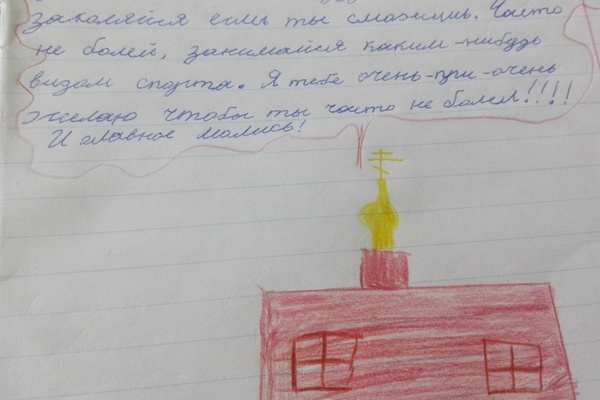 закаляйся если ты сможишь. Часто
не болей, занимайся каким-нибудь
видом спорта. Я тебе очень-при-очень
желаю чтобы ты часто не болел!!!!
И главное молись!